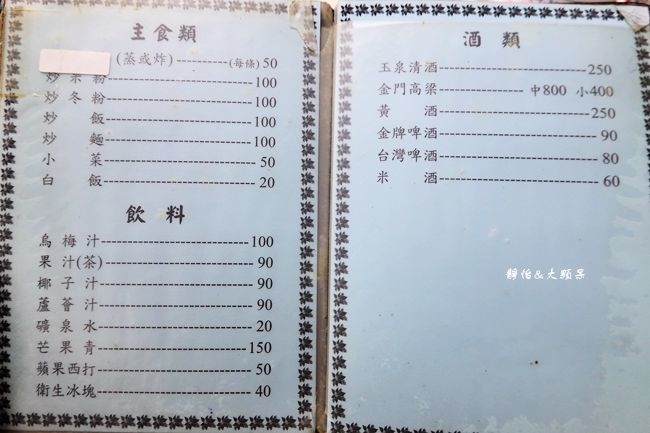 主食類
(蒸或炸)----------(每條)50
炒米粉----------100
炒冬粉----------100
炒飯----------100
炒麵----------100
小菜----------50
白飯----------20
飲料
烏梅汁----------100
果汁(茶)----------90
椰子汁----------90
蘆薈汁----------90
礦泉水----------20
芒果青----------150
蘋果西打----------50
衛生冰塊----------40
酒類
玉泉清酒----------250
金門高梁----------中800 小400
黃酒----------250
金牌啤酒----------90
台灣啤酒----------80
米酒----------60
靜怡&大顆呆